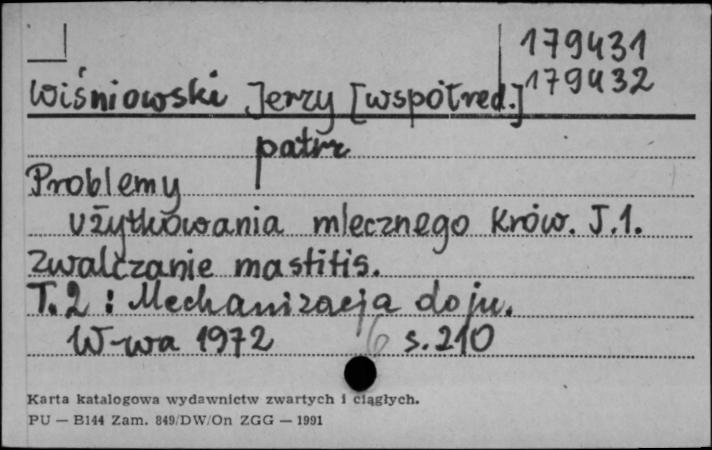 179431
Wiśniowski Jerzy [współred.] 179432
patrz
Problemy
użytkowania mlecznego krów. T.1.
Zwalczanie mastitis.
T.2 : Mechanizacja doju.
W-wa 1972 s. 210
Karta katalogowa wydawnictw zwartych i ciągłych.
PU — B144 Zam. 849/DW/On ZGG — 1991